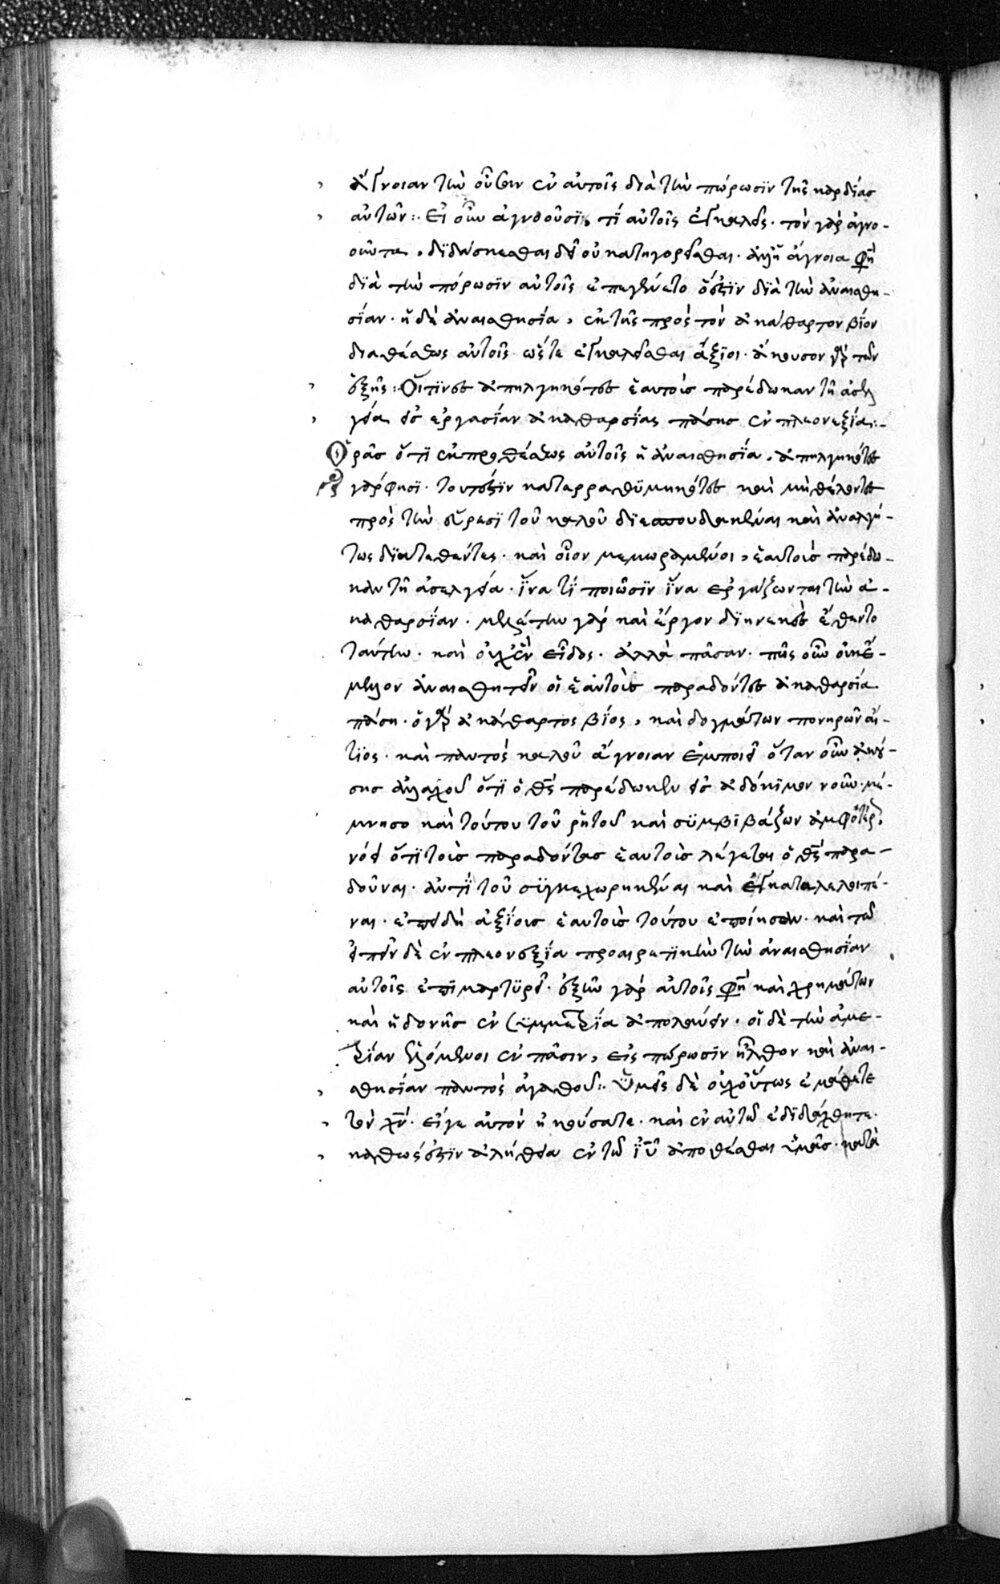 ἄγνοιαν τὴν οὖσαν ἐν αὐτοῖς διὰ τὴν πώρωσϊν τῆς καρδίας
αὐτῶν: Εἰ οὖν ἀγνοοῦσϊ, τί αὐτοῖς ἐγκαλεῖς· τὸν γὰρ ἀγνο-
οῦντα, διδάσκεσθαι δεῖ οὐ κατηγορεῖσθαι· ἀλλ' ἡ ἄγνοια φησὶ
διὰ τὴν πόρωσϊν αὐτοῖς ἐπεγένετο ὅ ἐστϊν διὰ τὴν ἀναισθη-
σίαν· ἡ δὲ ἀναισθησία, ἐκ τῆς πρὸς τὸν ἀκάθαρτον βίον
διαθέσεως αὐτοῖς ὥστε ἐγκαλεῖσθαι ἄξιοι· ἄκουσον γὰρ τῶν
ἑξῆς: Οἵτινες ἀπηλγηκότες ἑαυτοὺς παρέδωκαν τῇ ἀσελ
γείᾳ εἰς ἐργασίαν ἀκαθαρσίας πάσης ἐν πλεονεξίᾳ:-
Ὁρᾶς ὅτι ἐκ προθέσεως αὐτοῖς ἡ ἀναισθησία, ἀπηλγηκότες
γάρ φησι· τουτέστϊν καταρραθϋμηκότες καὶ μὴ θέλοντες
πρὸς τὴν εὕρεσϊ τοῦ καλοῦ διεσπουδακέναι καὶ ἀναλγή-
τως διατεθέντες· καὶ οἷον μεμωραμένοι, ἑαυτοὺς παρέδω-
καν τῇ ἀσελγείᾳ· ἵνα τί ποιῶσϊν ἵνα ἐργάζωνται τὴν ἀ-
καθαρσίαν· μελέτην γὰρ καὶ ἔργον διηνεκὲς ἔθεντο
ταύτην· καὶ οὐχ ἓν εἶδος· ἀλλὰ πᾶσαν· πῶς οὖν οὐκ ἔ-
μελλον ἀναισθητεῖν οἱ ἑαυτοὺς παραδόντες ἀκαθαρσίᾳ
πάσῃ· ὁ γὰρ ἀκάθαρτος βίος, καὶ δογμάτων πονηρῶν αἴ-
τϊος· καὶ παντὸς καλοῦ ἄγνοιαν ἐμποιεῖ ὅταν οὖν ἀκού-
σῃς ἀλλαχοῦ ὅτι ὁ θς παρέδωκεν εἰς ἀδόκϊμον νοῦν· μέ-
μνησο καὶ τούτου τοῦ ῥητοῦ καὶ σϋμβϊβάζων ἀμφότερα
νόει ὅτι τοὺς παραδόντας ἑαυτοὺς λέγεται ὁ θς παρα-
δοῦναι· ἀντὶ τοῦ σϋγκεχωρηκέναι καὶ ἐγκαταλελοιπέ-
ναι· ἐπειδὴ ἀξίους ἑαυτοὺς τούτου ἐποίησαν· καὶ τῶ
εἰπεῖν δὲ ἐν πλεονεξίᾳ προαιρετϊκὴν τὴν ἀναισθησίαν
αὐτοῖς ἐπϊμαρτϋρεῖ· ἐξῆν γὰρ αὐτοῖς φησὶ καὶ χρημάτων
καὶ ἡδονῆς ἐν σϋμμετρίᾳ ἀπολαύειν· οἱ δὲ τὴν ἀμε-
τρίαν ἑλόμενοι ἐν πᾶσιν, εἰς πώρωσϊν ἦλθον καὶ ἀναι-
σθησίαν παντὸς ἀγαθοῦ: Ὑμεῖς δὲ οὐχ οὕτως ἐμάθετε
τὸν χν· εἴγε αὐτὸν ἠκούσατε· καὶ ἐν αὐτῶ ἐδϊδάχθητε·
καθώς ἐστϊν ἀλήθεια ἐν τῶ ϊυ ἀποθέσθαι ὑμᾶς· κατὰ